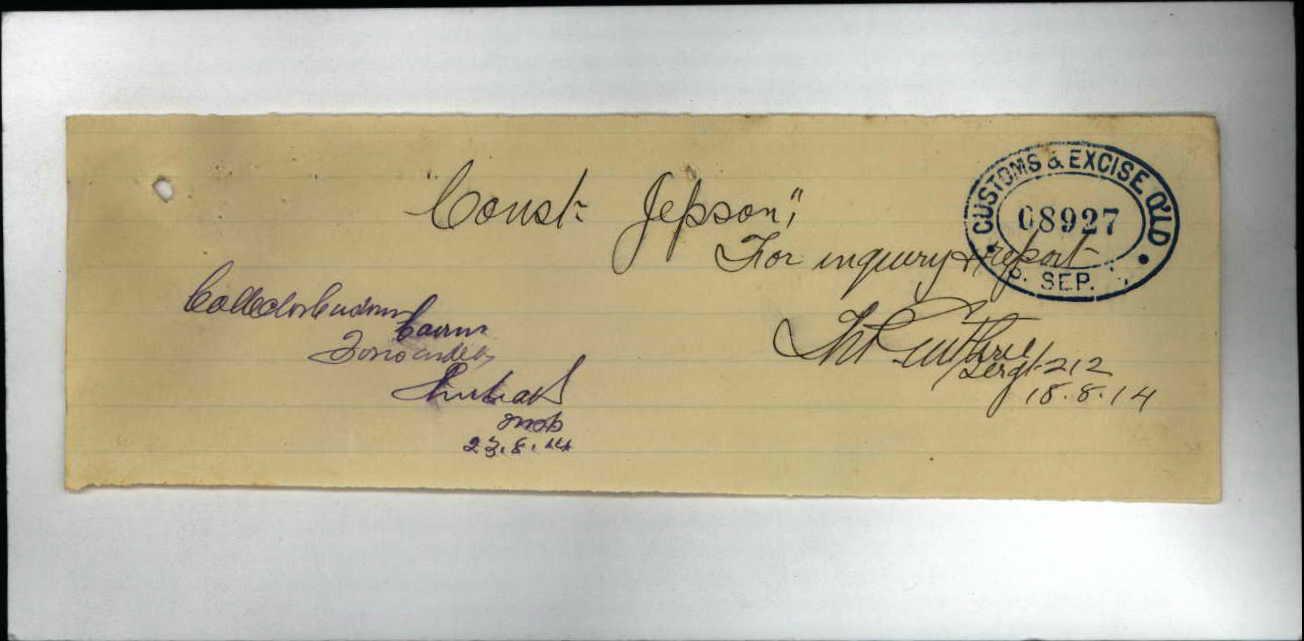 CUSTOMS & EXCISE Q'LD
08927
SEP.
"Const- Jepson",
For inquiry & report
Sergt 212
18.8.14
Collector Customs
Cairns
Forwarded
23.8.14